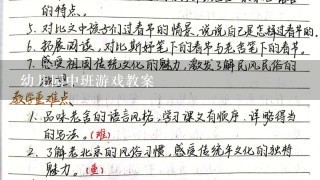 的特点。
5. 对比文中孩子们过春节的情景,说说自己是怎样过春节的。
6. 拓展阅读,对比斯妤笔下的春节与老舍笔下的春节。
7. 感受祖国传统文化的魅力,激发了解民风民俗的
幼儿园中班游戏教案
教学重难点
1. 品味老舍的语言风格,学习课文有顺序、详略得当
的写法。(难)
2. 了解老北京的风俗习惯,感受传统年文化的独特
魅力。(重)